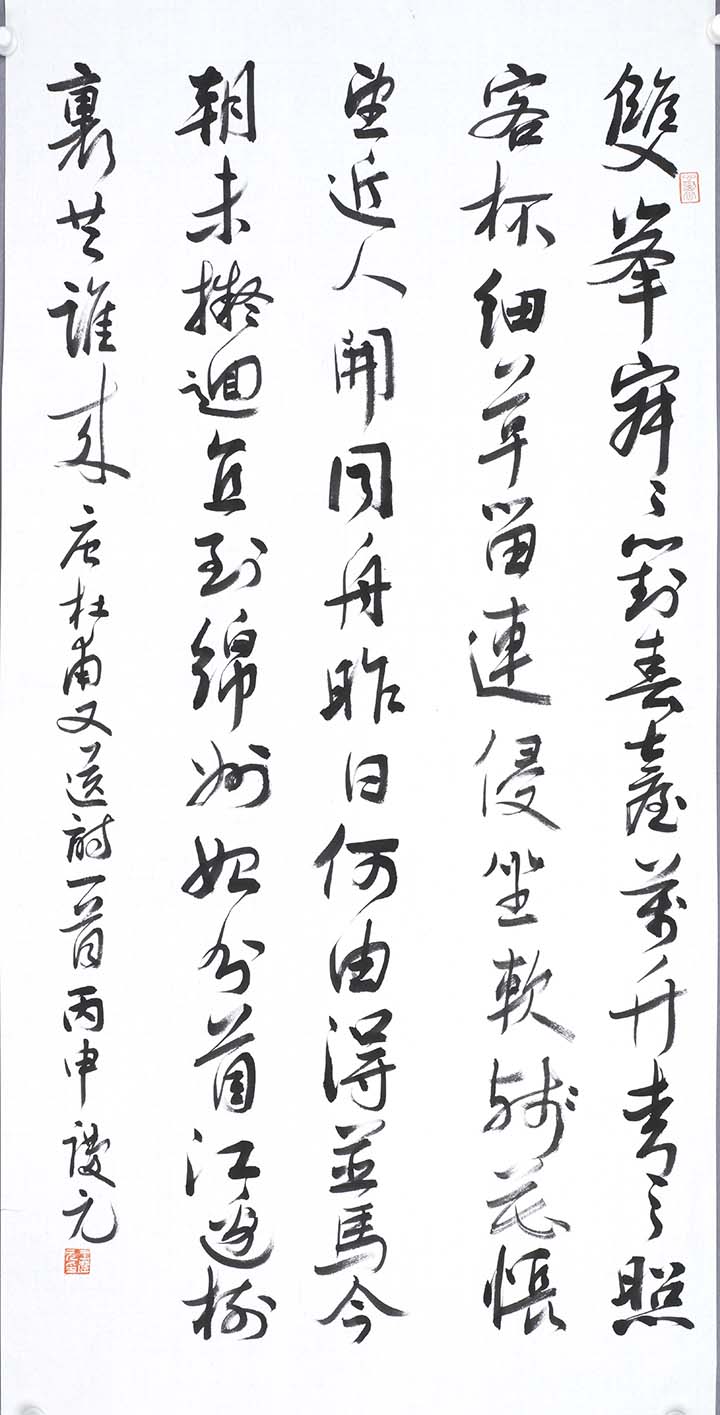 雙峯寂〻對春臺萬竹青〻照
客杯細草留連侵坐軟殘花悵
望近人開同舟昨日何由得並馬今
朝未擬迴直到綿州始分首江邊樹
裏共誰來 唐杜甫又送詩一首丙申元